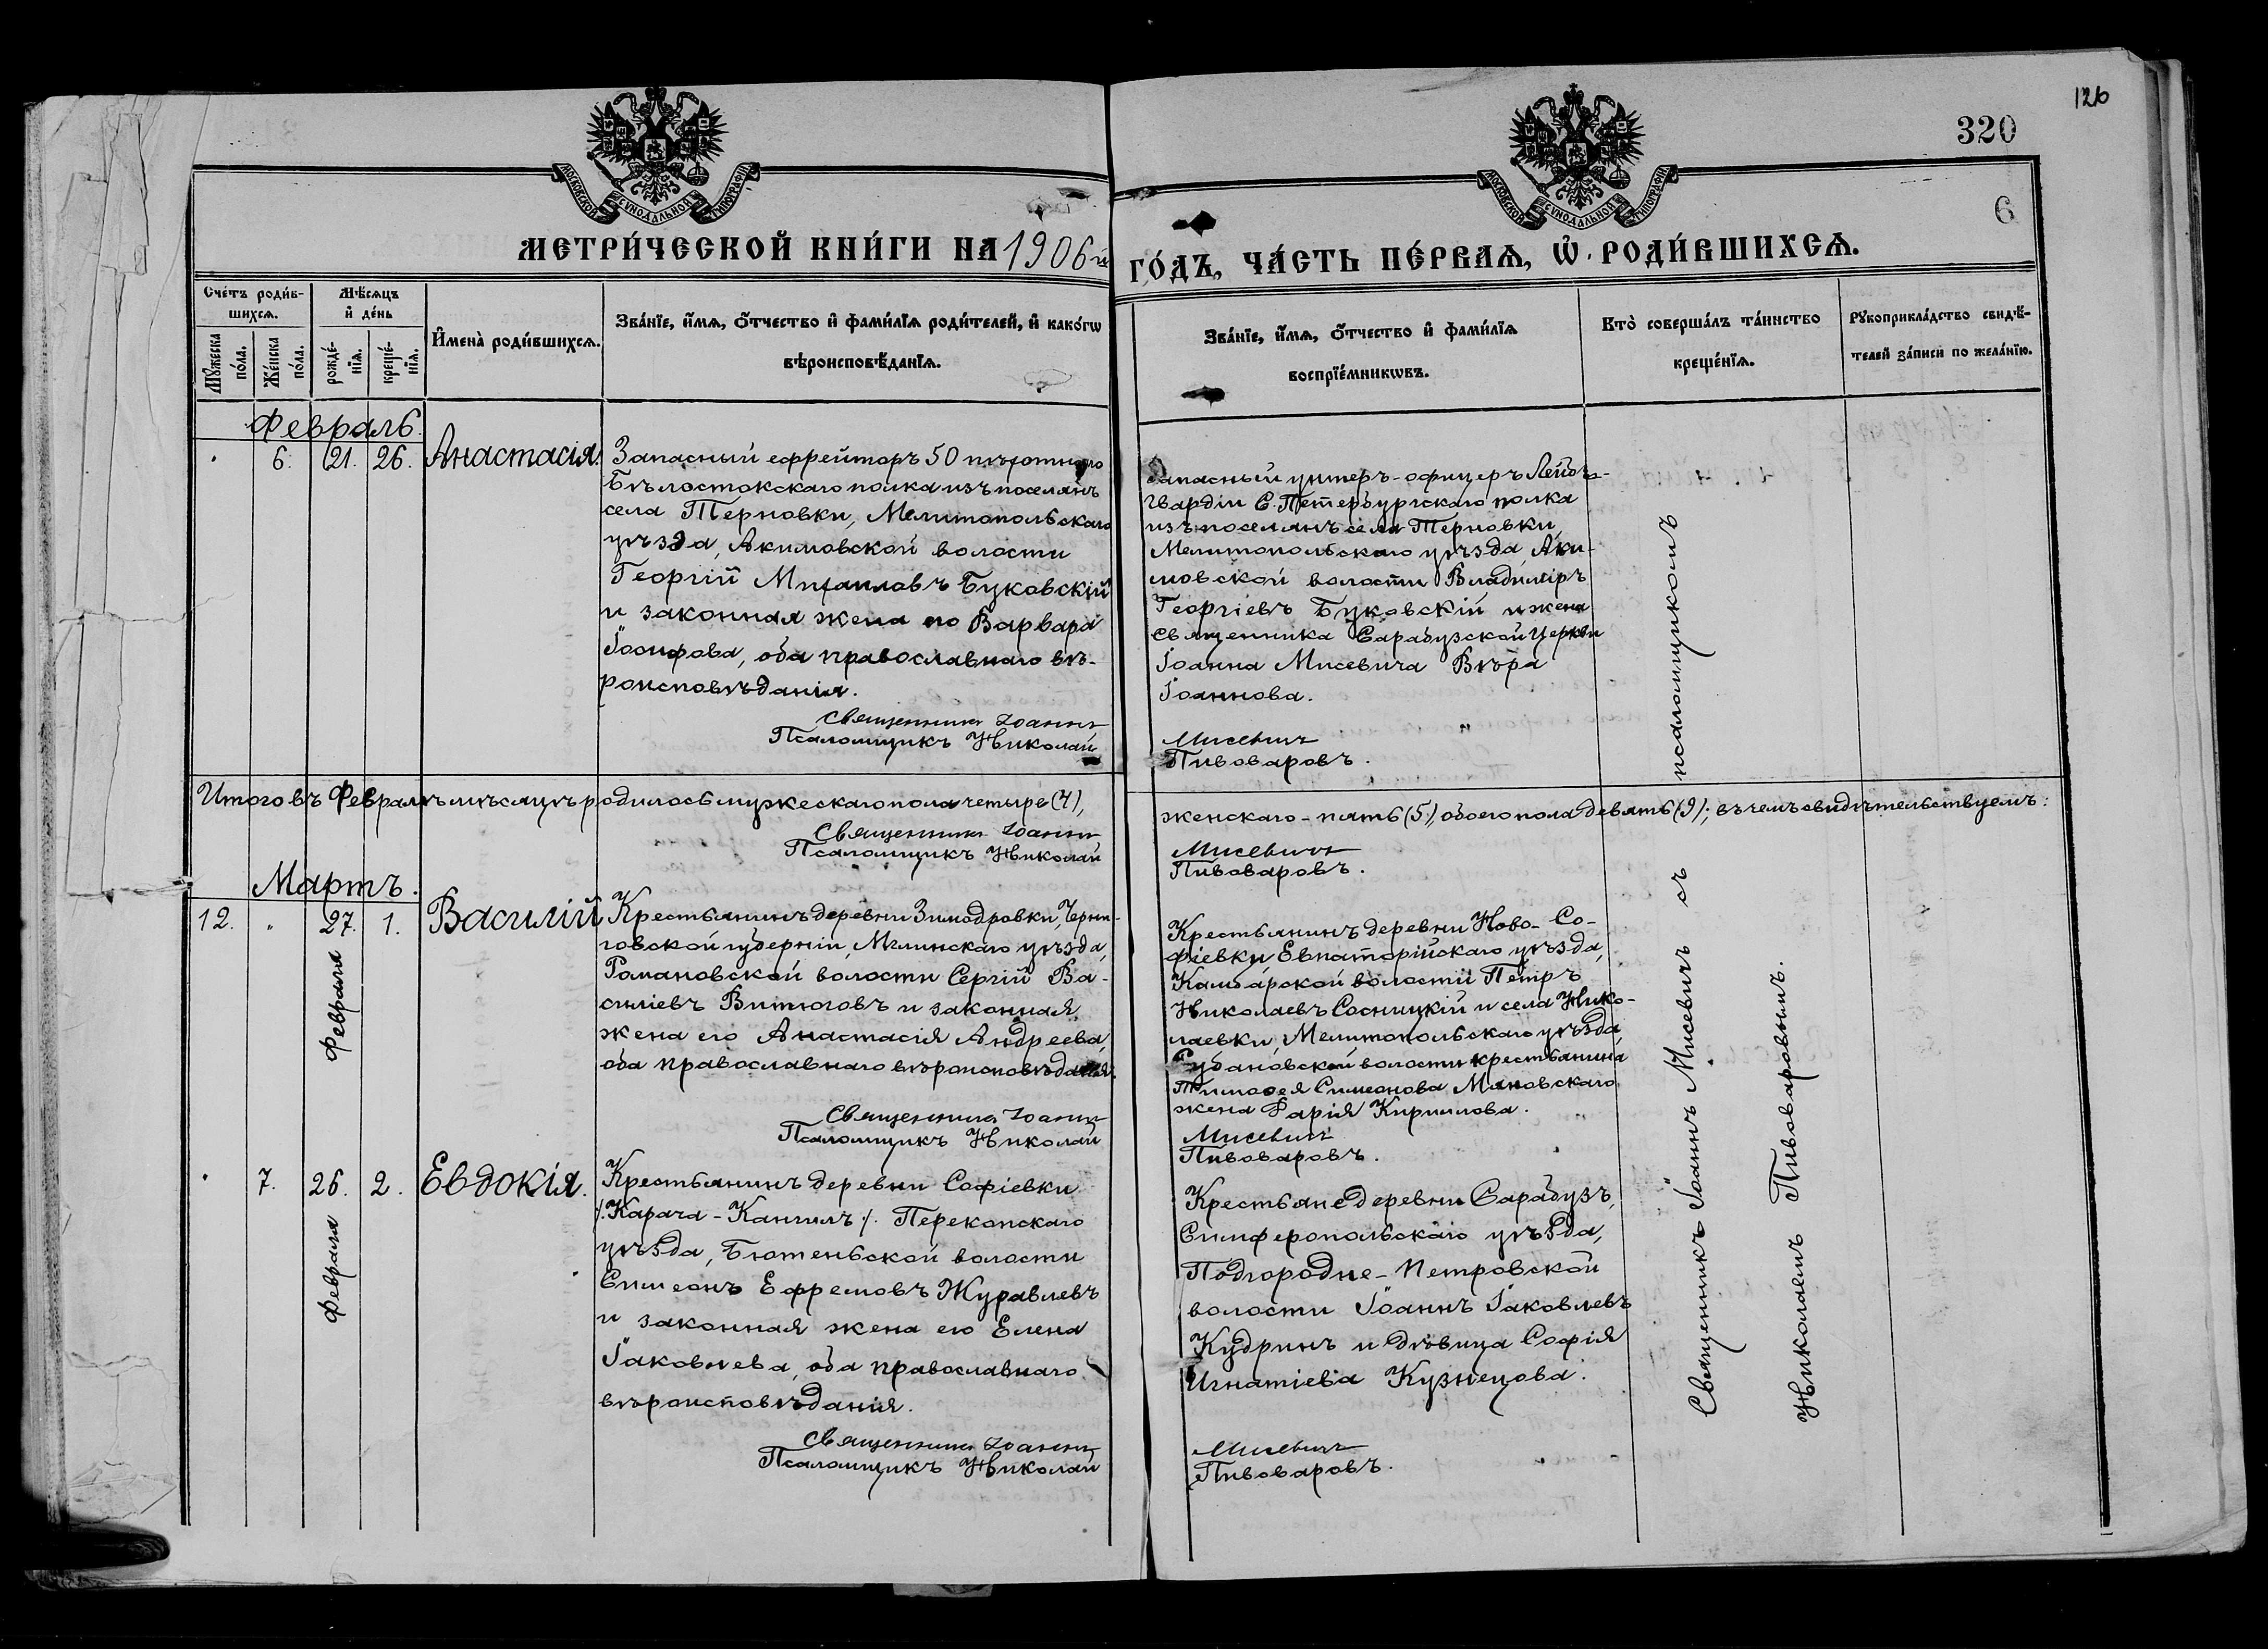 126
320
6
МОСКОВСКОЙ СУНОДАЛЬНОЙ ТИПОГРАФІИ
МОСКОВСКОЙ СУНОДАЛЬНОЙ ТИПОГРАФІИ
МЕТРИ́ЧЕСКОЙ КНИ́ГИ НА 1906й
ГО́ДЪ, ЧА́СТЬ ПЕ́РВАѦ, Ѡ҆ РОДИ́ВШИХСѦ.
Сче́тъ роди́в-
шихсѧ.
Мѣ́сѧцъ
и҆ де́нь
Мꙋ́жеска
по́ла.
Же́нска
по́ла.
рожде́-
нїѧ.
креще́-
нїѧ.
И҆мена̀ роди́вшихсѧ.
Зва́нїе, и҆́мѧ, ѻ҆́тчество и҆ фами́лїѧ роди́телей, и҆ како́гѡ
вѣроисповѣ́данїѧ.
Зва́нїе, и҆́мѧ, ѻ҆́тчество и҆ фами́лїѧ
воспрїе́мникѡвъ.
Кто̀ соверша́лъ та́инство
креще́нїѧ.
Рꙋкоприкла́дство свидѣ́-
телей за́писи по жела́нїю.
Февраль.
" 6. 21. 26. Анастасія.
Запасный ефрейторъ 50 пѣхотнаго
Бѣлостокскаго полка изъ поселянъ
села Терновки, Мелитопольскаго
уѣзда, Акимовской волости
Георгій Михаиловъ Буковскій
и законная жена его Варвара
Іосифова, оба православнаго вѣ-
роисповѣданія.
Священникъ Іоаннъ
Псаломщикъ Николай
Запасный унтеръ-офицеръ Лейбъ-
Гвардіи С. Петербургскаго полка
изъ поселянъ села Терновки,
Мелитопольскаго уѣзда Аки-
мовской волости Владиміръ
Георгіевъ Буковскій и жена
священника Сарабузской Церкви
Іоанна Мисевича Вѣра
Іоаннова.
Мисевичъ
Пивоваровъ.
Итого въ Февралѣ мѣсяцѣ родилось мужескаго пола четыре (4),
женскаго - пять (5), обоего пола девять (9); въ чемъ свидѣтельствуемъ:
Священникъ Іоаннъ
Псаломщикъ Николай
Мисевичъ
Пивоваровъ.
Мартъ.
12. " 27. 1. Василій
Февраля
Крестьянинъ деревни Зимодровки, Черни-
говской губерніи, Мглинскаго уѣзда,
Романовской волости Сергій Ва-
силіевъ Витюговъ и законная
жена его Анастасія Андреева,
оба православнаго вѣроисповѣданія.
Священникъ Іоаннъ
Псаломщикъ Николай
Крестьянинъ деревни Ново-Со-
фіевки, Евпаторійскаго уѣзда,
Камбарской волости Петръ
Николаевъ Сосницкій и села Нико-
лаевки, Мелитопольскаго уѣзда
волости крестьянина
Тимоѳея Симеонова Маковскаго
жена Дарія Кириллова.
Мисевичъ
Пивоваровъ.
" 7. 26. 2. Евдокія.
Февраля
Крестьянинъ деревни Софіевки
/:Карача-Кангилъ:/. Перекопскаго
уѣзда, Бютеньской волости
Симеонъ Ефремовъ Журавлевъ
и законная жена его Елена
Іаковлева, оба православнаго
вѣроисповѣданія.
Священникъ Іоаннъ
Псаломщикъ Николай
Крестьяне деревни Сарабузъ,
Симферопольскаго уѣзда,
Подгородне-Петровской
волости Іоаннъ Іаковлевъ
Кудринъ и дѣвица Софія
Игнатіева Кузнецова.
Мисевичъ
Пивоваровъ.
Священникъ Іоаннъ Мисевичъ съ псаломщикомъ
Николаемъ Пивоваровымъ.